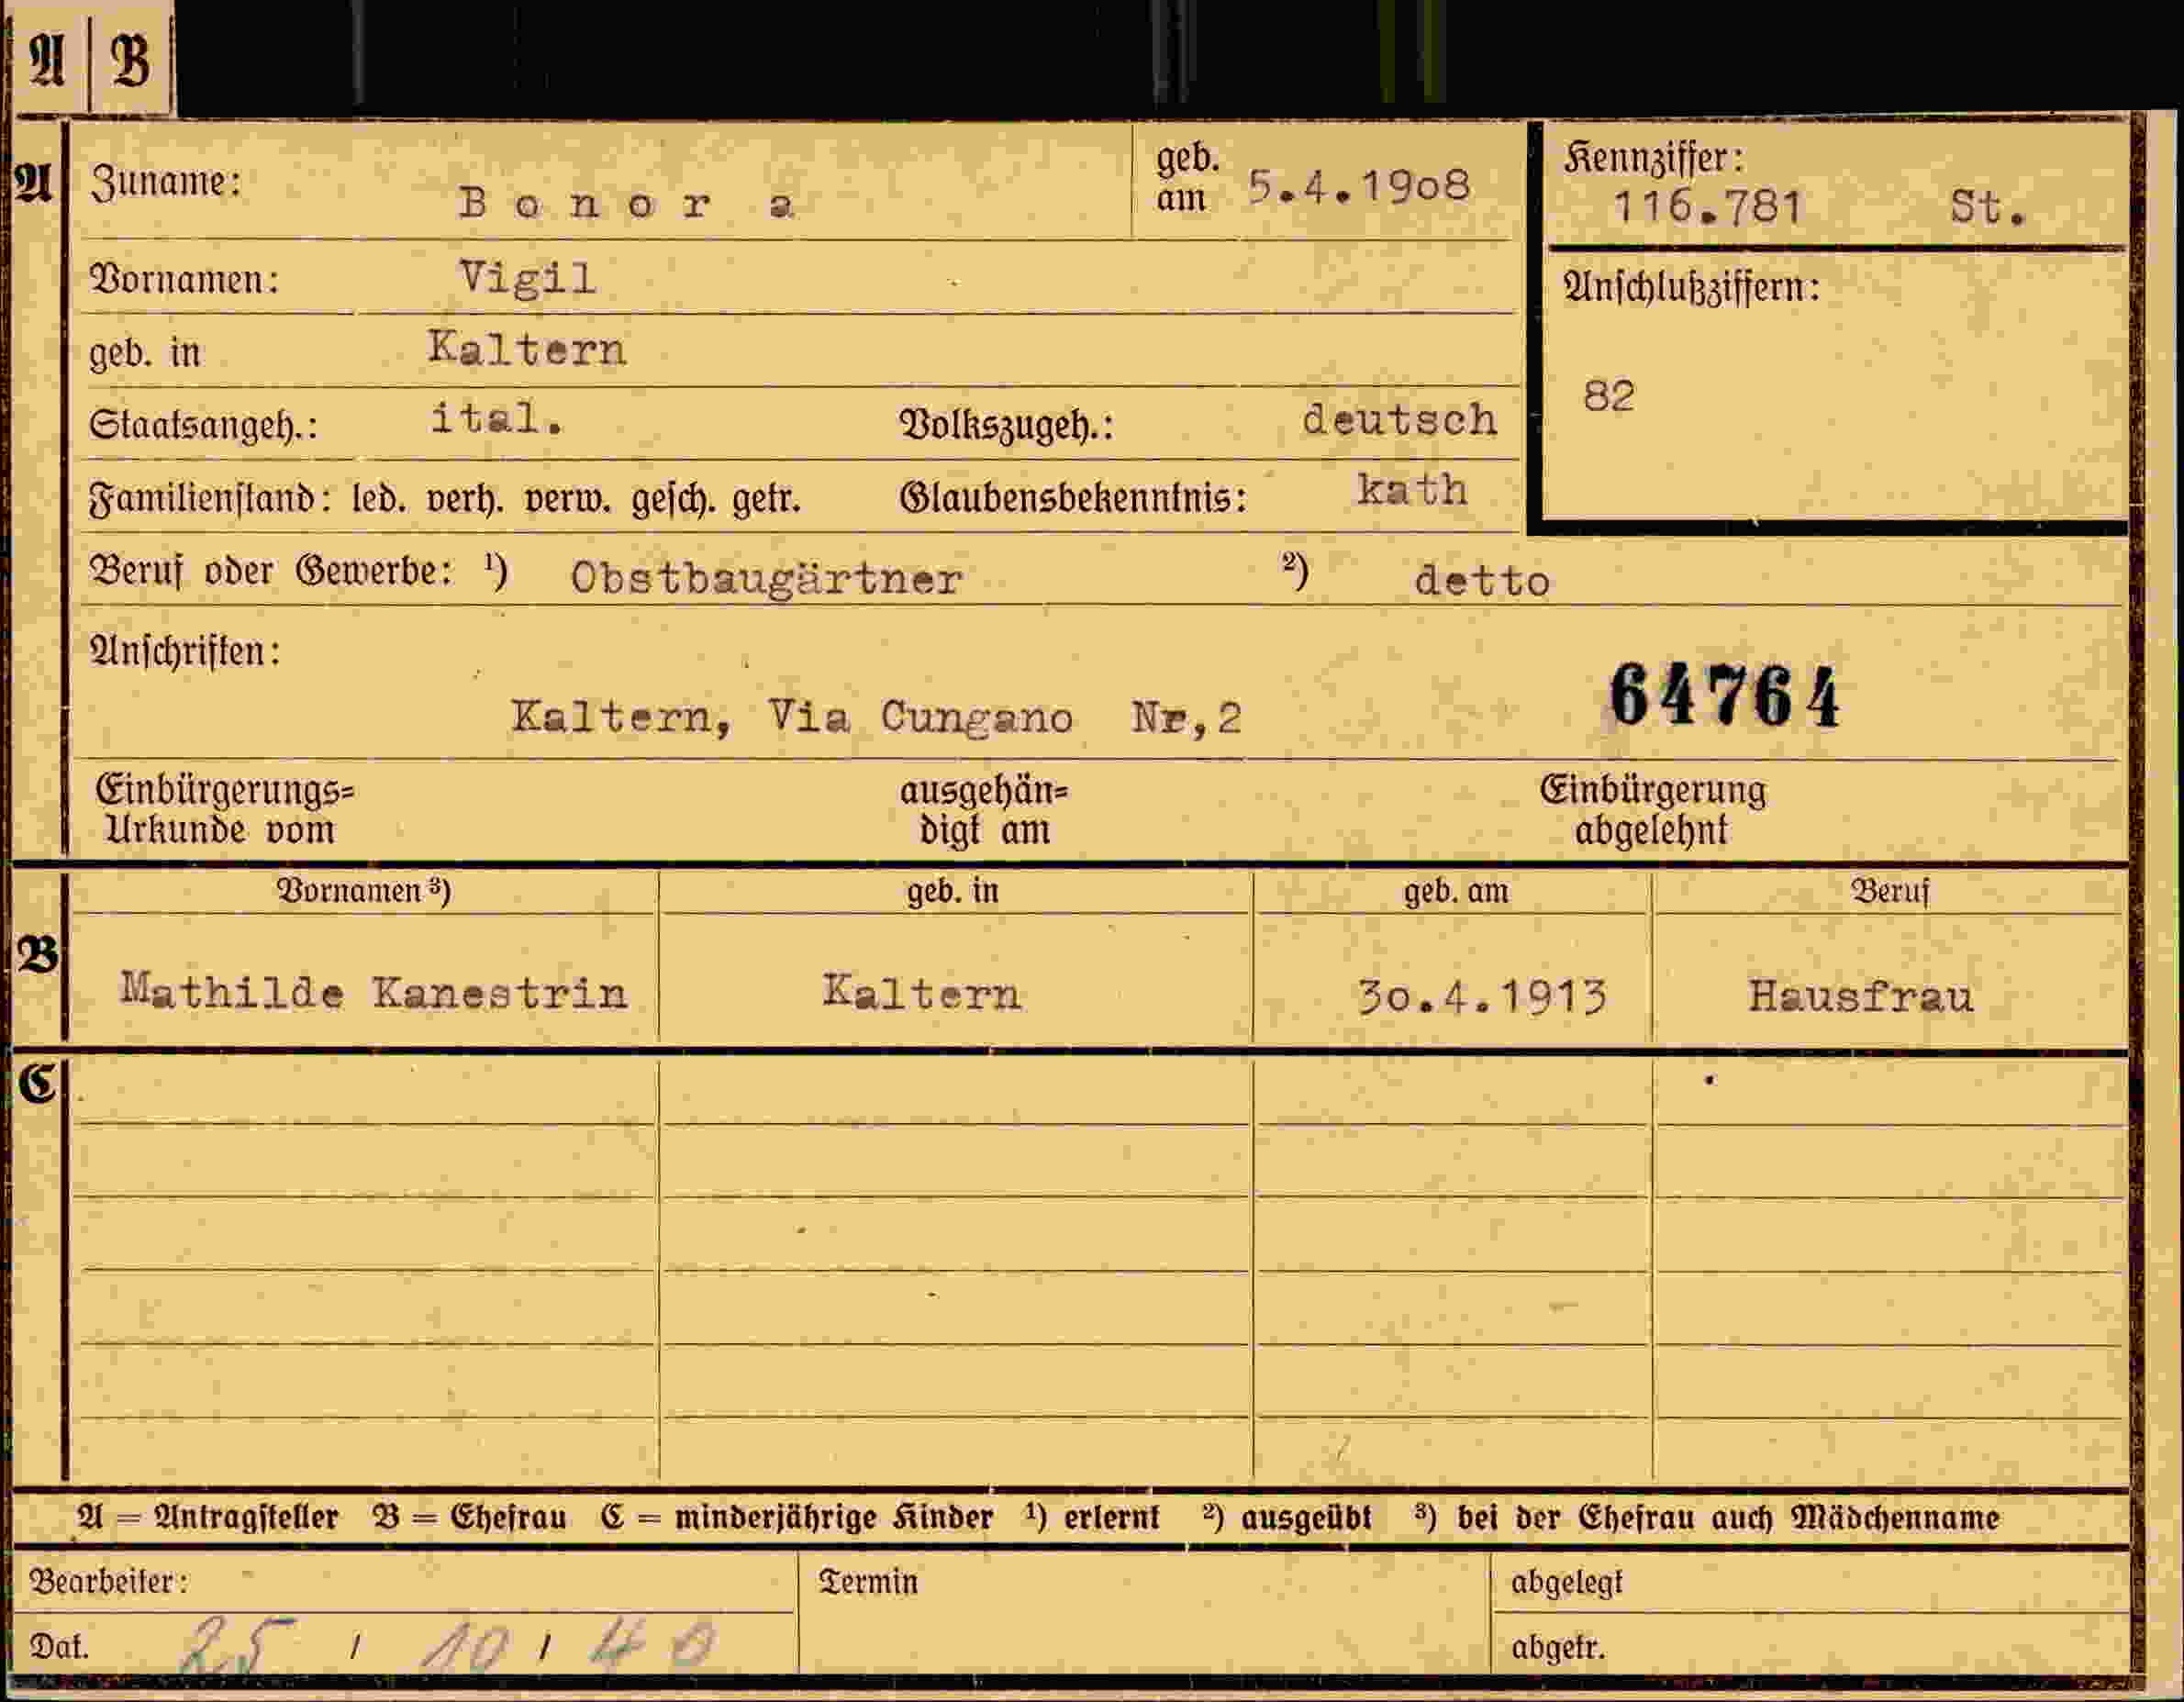 A B
A Zuname: Bonora geb. am 5.4.1908 Kennziffer: 116.781 St.
Vornamen: Vigil
Anschlußziffern:
geb. in Kaltern
82
Staatsangeh.: ital. Volkszugeh.: deutsch
Familienstand: led. verh. verw. gesch. getr. Glaubensbekenntnis: kath
Beruf oder Gewerbe: ¹) Obstbaugärtner ²) detto
Anschriften:
64764
Kaltern, Via Cungano Nr,2
Einbürgerungs= ausgehän= Einbürgerung
Urkunde vom digt am abgelehnt
Vornamen ³) geb. in geb. am Beruf
B
Mathilde Kanestrin Kaltern 30.4.1913 Hausfrau
C
A = Antragsteller B = Ehefrau C = minderjährige Kinder ¹) erlernt ²) ausgeübt ³) bei der Ehefrau auch Mädchenname
Bearbeiter: Termin abgelegt
Dat. 25 / 10 / 40 abgetr.